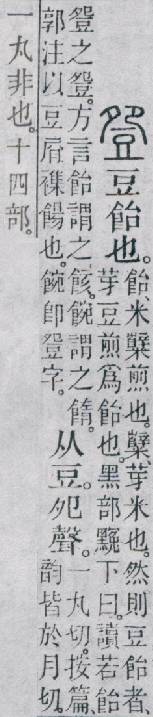 䝀豆飴也。飴、米糱煎也。糱、芽米也。然則豆飴者、
芽豆煎爲飴也。黑部䵫下曰。讀若飴
䝀之䝀。方言飴謂之䬵。䬧謂之䭉。
郭注以豆屑襍餳也。䬧卽䝀字。
从豆。夗聲。一丸切。按篇、
韵皆於月切。
一丸非也。十四部。